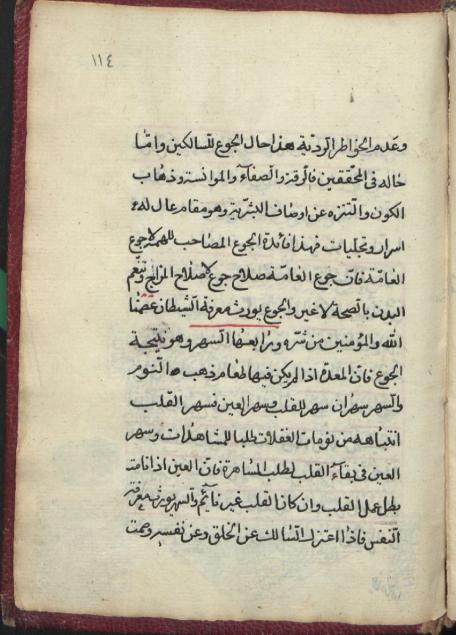 ١١٤
وعدم الخواطر الرديّة هذا حال الجوع للسالكين وامّا
حاله في المحققين فالرقة والصفآء والموانسة وذهاب
الكون والتنزه عن اوصاف البشرية وهو مقام عال له
اسرار وتجليات فهذا فائدة الجوع المصاحب للهمة لا جوع
العامّة فان جوع العامّة صلاح جوع لاصلاح المزاج وتنعم
البدن بالصحة لا غير والجوع يورث معرفة الشيطان عصمنا
الله والمؤمنين من شره ورابعها السهر وهو نتيجة
الجوع فان المعدة اذا لم يكن فيها طعام ذهب النوم
والسهر سهران سهر للقلب وسهر العين فسهر القلب
انتباهه من نومات الغفلات طلبا للمشاهدات وسهر
العين في بقآء القلب لطلب المسامرة فان العين اذا نامت
بطل عمل القلب وان كان القلب غير نآئم والسهر يورث معرفة
النفس فاذا اعتزل السالك عن الخلق وعن نفسه وصمت